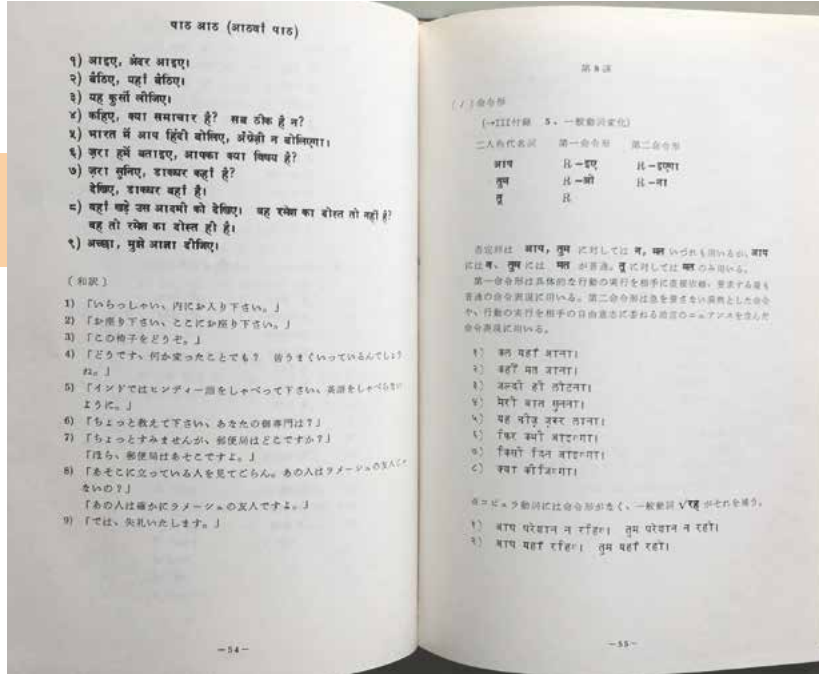 पाठ आठ (आठवाँ पाठ)
१) आइए, अंदर आइए।
२) बैठिए, यहाँ बैठिए।
३) यह कुर्सी लीजिए।
४) कहिए, क्या समाचार है? सब ठीक है न?
५) भारत में आप हिंदी बोलिए, अँग्रेज़ी न बोलिएगा।
६) ज़रा हमें बताइए, आपका क्या विषय है?
७) ज़रा सुनिए, डाकघर कहाँ है?
देखिए, डाकघर वहाँ है।
८) वहाँ खड़े उस आदमी को देखिए। वह रमेश का दोस्त तो नहीं है?
वह तो रमेश का दोस्त ही है।
९) अच्छा, मुझे आज्ञा दीजिए।
(和訳)
1) 「いらっしゃい、内にお入り下さい。」
2) 「お座り下さい、ここにお座り下さい。」
3) 「この椅子をどうぞ。」
4) 「どうです、何か変ったことでも? 皆うまくいっているんでしょう
ね。」
5) 「インドではヒンディー語をしゃべって下さい、英語をしゃべらない
ように。」
6) 「ちょっと教えて下さい、あなたの御専門は?」
7) 「ちょっとすみませんが、郵便局はどこですか?」
「ほら、郵便局はあそこですよ。」
8) 「あそこに立っている人を見てごらん。あの人はラメーシュの友人じゃ
ないの?」
「あの人は確かにラメーシュの友人ですよ。」
9) 「では、失礼いたします。」
-54-
第8課
(1)命令形
(→III付録 5、一般動詞変化)
二人称代名詞 第一命令形 第二命令形
आप R-इए R-इएगा
तुम R-ओ R-ना
तू R
否定形は आप, तुम に対しては न, मत いづれも用いるが、आप
には न、तुम には मत が普通。तू に対しては मत のみ用いる。
第一命令形は具体的な行動の実行を相手に直接依頼、要求する最も
普通の命令表現に用いる。第二命令形は急を要さない漠然とした命令
や、行動の実行を相手の自由意志に委ねる程度のニュアンスを含んだ
命令表現に用いる。
१) कल यहाँ आना।
२) कहीं मत जाना।
३) जल्दी ही लौटना।
४) मेरी बात सुनना।
५) यह चीज़ ज़रूर लाना।
६) फिर कभी आइएगा।
७) किसी दिन आइएगा।
८) क्या कीजिएगा।
※コピュラ動詞には命令形がなく、一般動詞 √रह がそれを補う。
१) आप परेशान न रहिए। तुम परेशान न रहो।
२) आप यहाँ रहिए। तुम यहाँ रहो।
-55-